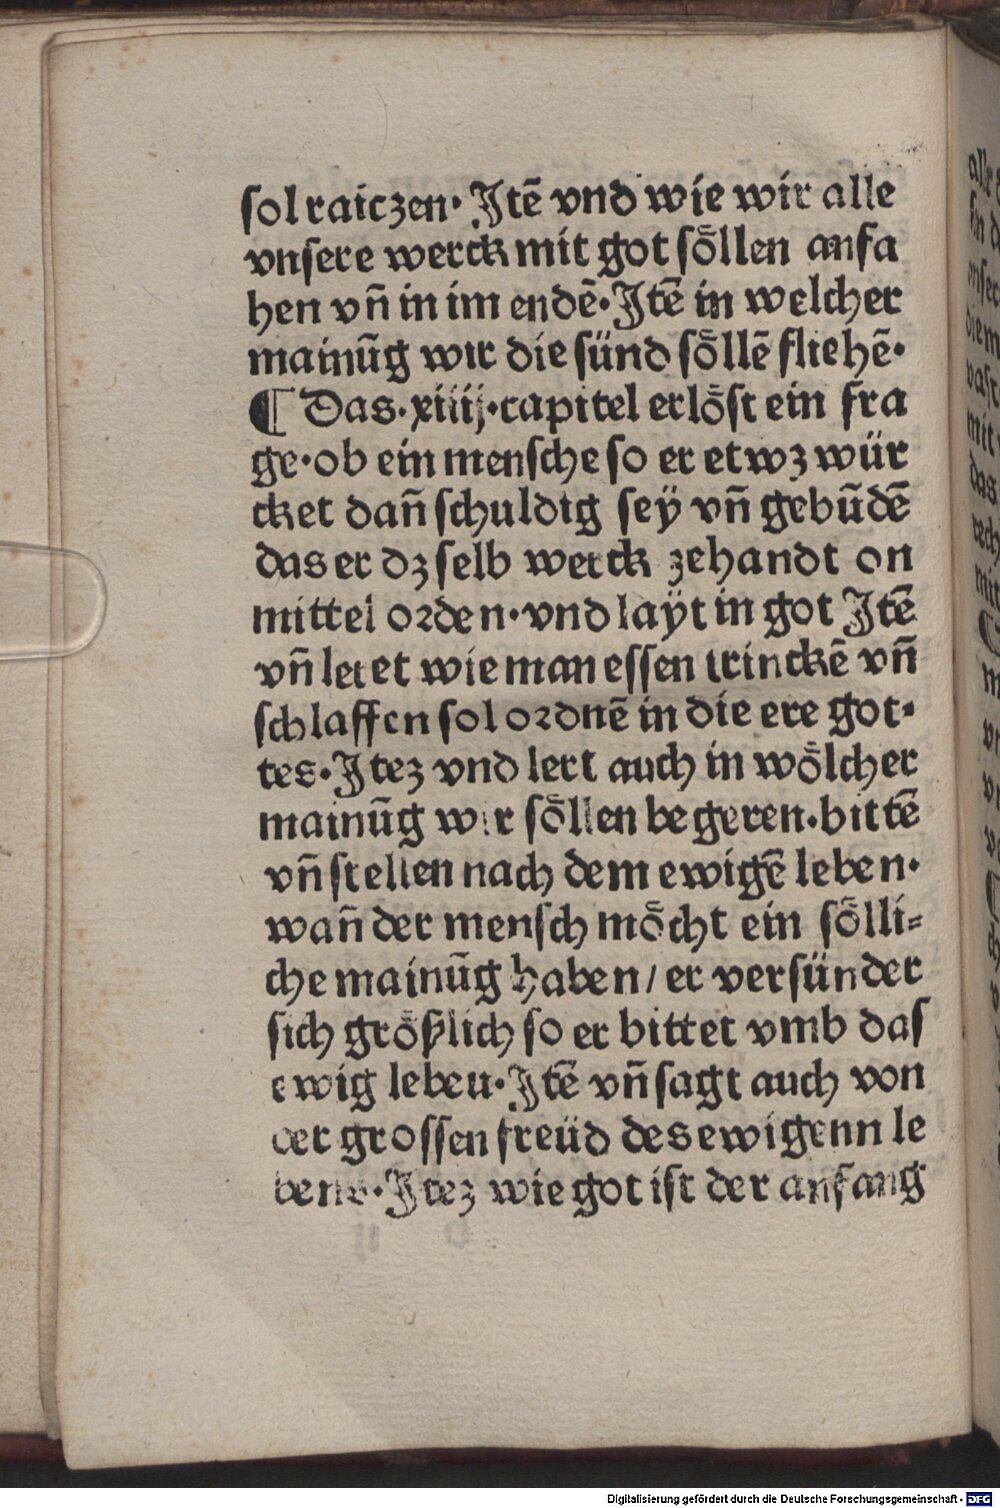 sol raiczen· Jtē vnd wie wir alle
vnsere werck mit got soͤllen anfa
hen vñ in im endē· Jtē in welcher
mainūg wir die sünd soͤllē fliehē·
¶ Das·xiiij·capitel erloͤst ein fra
ge·ob ein mensche so er etwz wür
cket dañ schuldig sey vñ gebūdē
das er dz selb werck zehandt on
mittel orden·vnd layt in got Jtē
vñ leret wie man essen trinckē vñ
schlaffen sol ordnē in die ere got·
tes·Jtez vnd lert auch in woͤlcher
mainūg wir soͤllen begeren·bittē
vñ stellen nach dem ewigē leben·
wañ der mensch moͤcht ein soͤlli=
che mainūg haben/er versünder
sich groͤßlich so er bittet vmb das
ewig leben·Jtē vñ sagt auch von
der grossen freüd des ewigenn le
bens·Jtez wie got ist der anfang
Digitalisierung gefördert durch die Deutsche Forschungsgemeinschaft - DFG